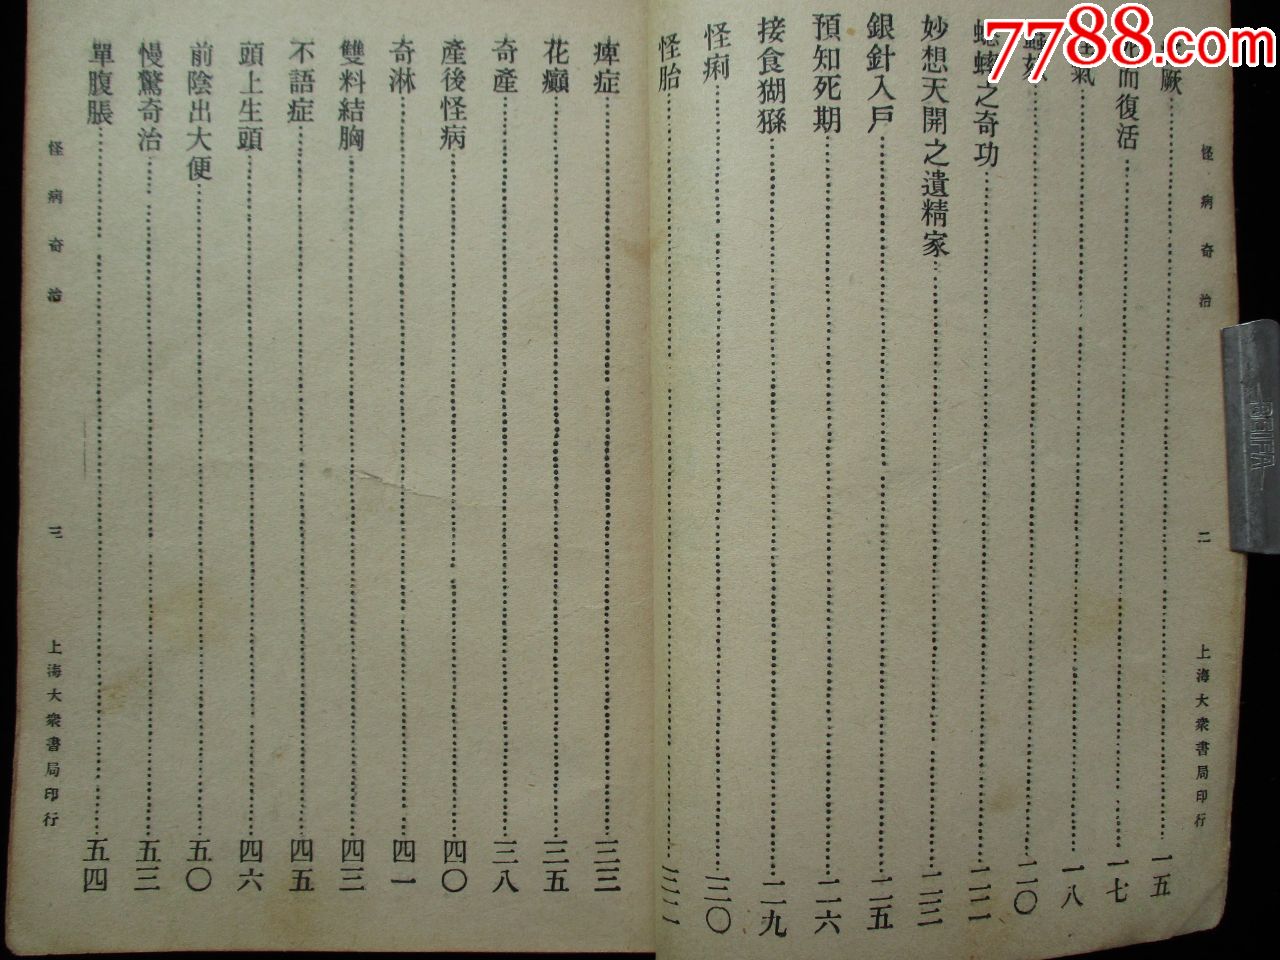 7788.com
怪病奇治 二 上海大衆書局印行
厥……一五
而復活……一七
氣……一八
二〇
蟋蟀之奇功……二二
妙想天開之遺精家……二三
銀針入戶……二五
預知死期……二六
接食猢猻……二九
怪痢……三〇
怪胎……三二
痺症……三三
花癲……三五
奇產……三八
產後怪病……四〇
奇淋……四一
雙料結胸……四三
不語症……四五
頭上生頭……四六
前陰出大便……五〇
慢驚奇治……五三
單腹脹……五四
怪病奇治 三 上海大衆書局印行